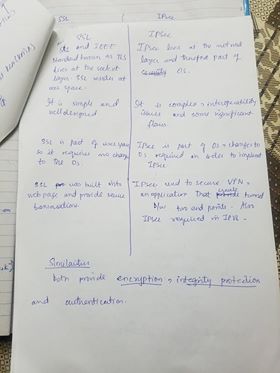 SSL
IPsec
SSL
and IETF
standard known as TLS
lives at the socket
layer. SSL resides at
user space.
IPsec
IPsec lives at the network
layer and transport part of
OS.
It is simple and
well designed
It is complex, interoperability
issues and some significant
flaws
SSL is part of user space
so it requires no change
to the OS.
IPsec is part of OS, changes to
OS required in order to implement
IPsec
SSL was built into
web page and provide secure
transmissions.
IPsec used to secure VPN,
an application that tunnel
b/w two end points. Also
IPsec required in IPv6.
Similarities
both provide encryption, integrity protection
and authentication.